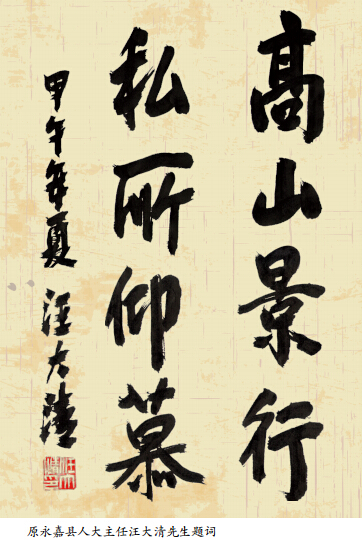 高山景行
私所仰慕
甲午年夏 汪大清
原永嘉县人大主任汪大清先生题词